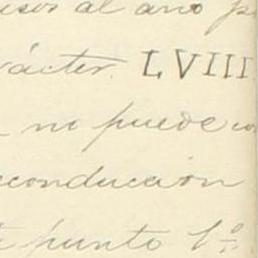 usos al año p
rácter. LVIII.
no puede co
econducción
punto 1º